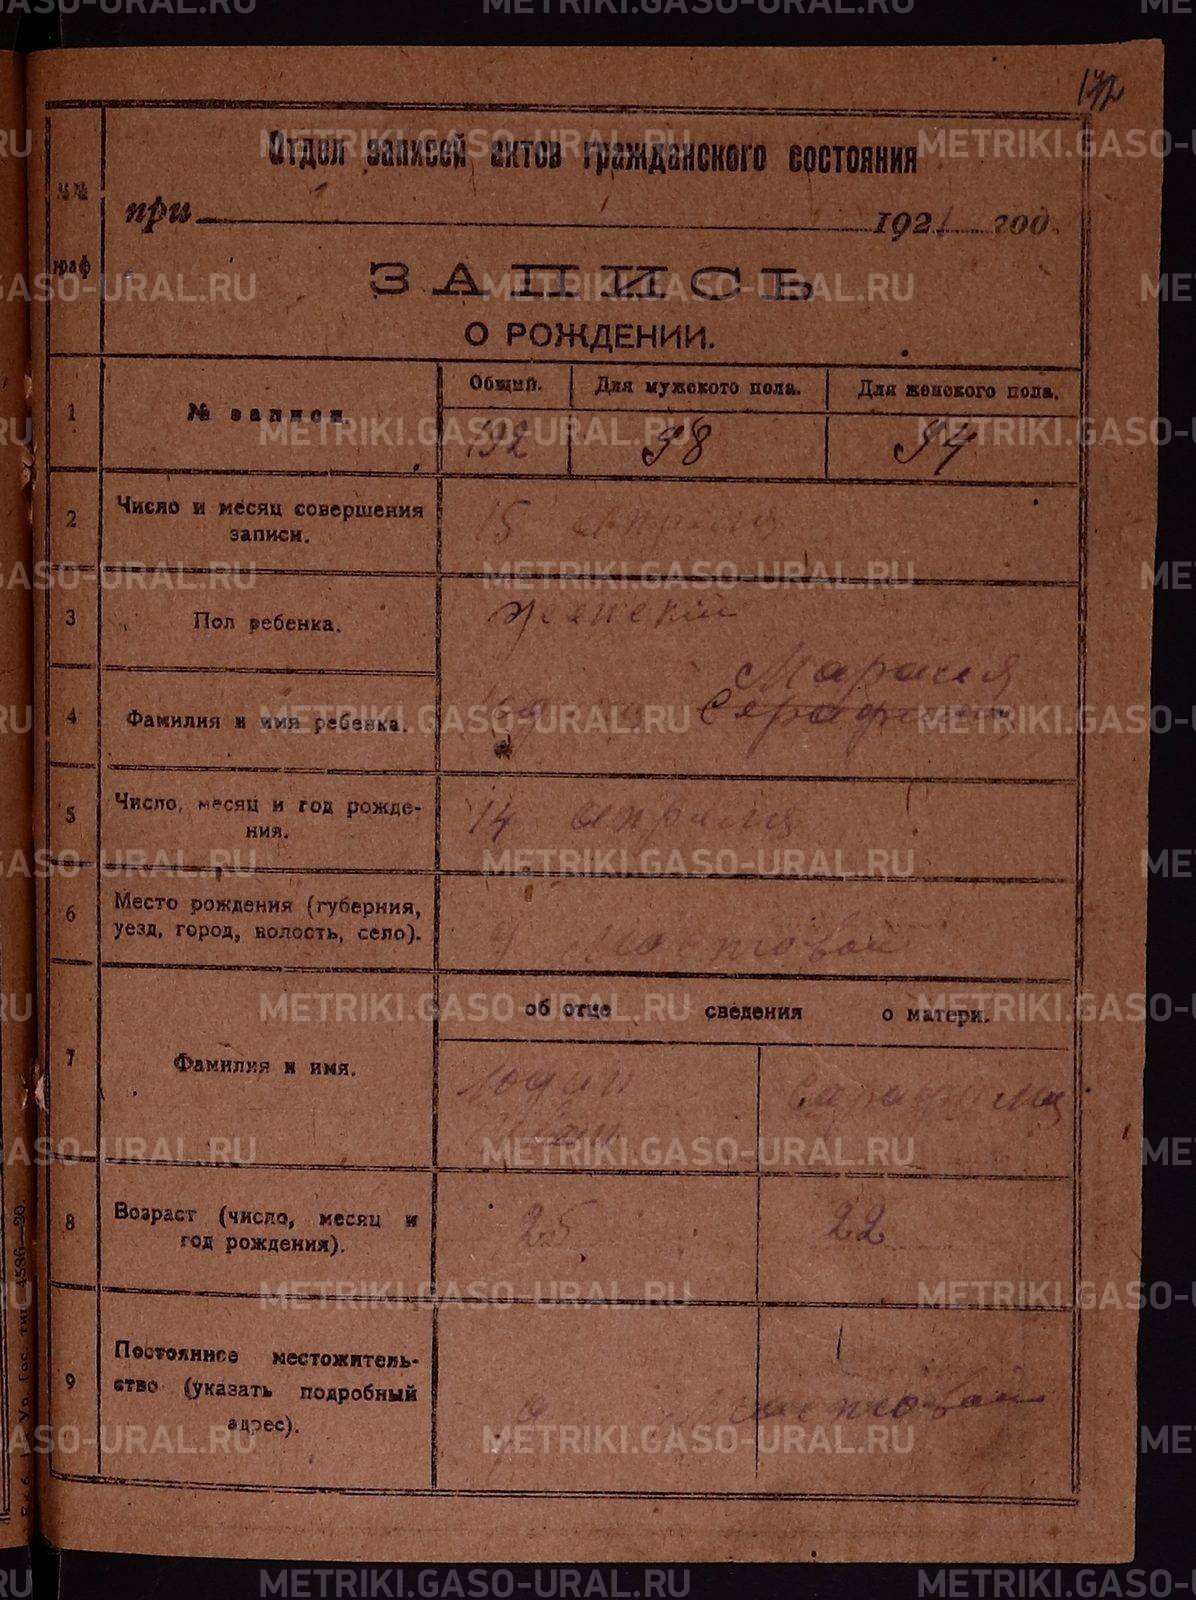 172
Отдел записей актов гражданского состояния
при 1921 год.
№№ граф
ЗАПИСЬ
О РОЖДЕНИИ.
1 № записи. Общий. Для мужского пола. Для женского пола.
192 98 94
2 Число и месяц совершения записи. 15 апреля
3 Пол ребенка. женский
Мария
4 Фамилия и имя ребенка. Серафима
5 Число, месяц и год рождения. 14 апреля
6 Место рождения (губерния, уезд, город, волость, село). д Мостовой
об отце сведения о матери.
7 Фамилия и имя. Юдин Серафима
Иван
8 Возраст (число, месяц и год рождения). 25 22
9 Постоянное местожительство (указать подробный адрес). д Мостовой
METRIKI.GASO-URAL.RU